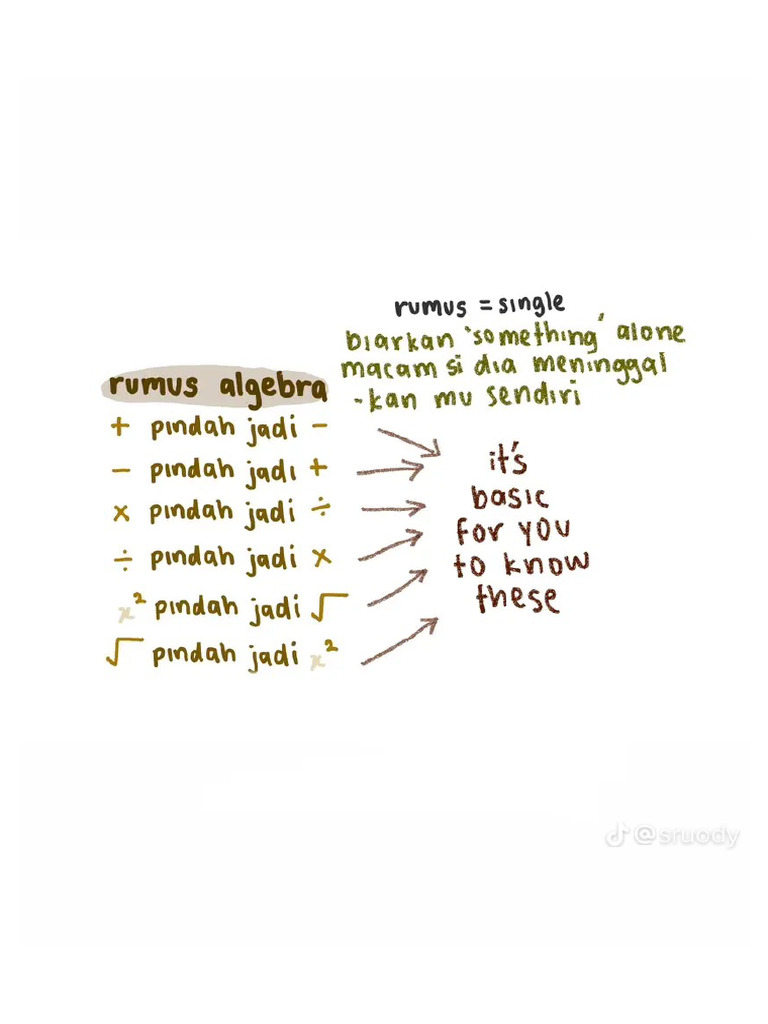 rumus = single
biarkan 'something' alone
macam si dia meninggal
-kan mu sendiri
rumus algebra
+ pindah jadi -
- pindah jadi +
× pindah jadi ÷
÷ pindah jadi ×
x² pindah jadi √
√ pindah jadi x²
it's
basic
for you
to know
these
@sruody